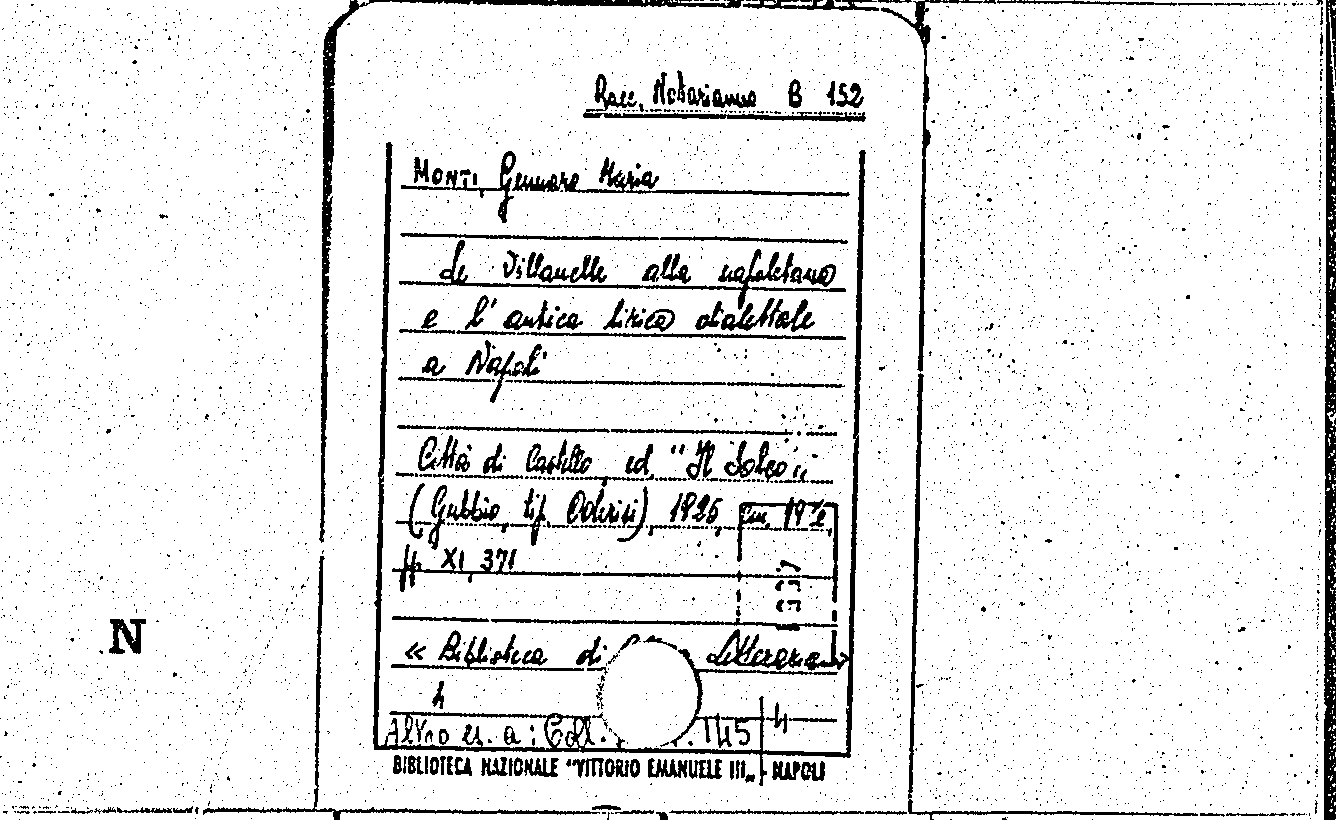 Racc. Notarianni B 152
MONTI, Gennaro Maria
Le Villanelle alla napoletana
e l'antica lirica dialettale
a Napoli
Città di Castello, ed. "Il Solco"
(Gubbio, tip. Oderisi), 1925, cm. 19½
pp. XI, 371
« Biblioteca di Letteraria »
4
N
Altro es. a: Coll. 145 4
BIBLIOTECA NAZIONALE "VITTORIO EMANUELE III" - NAPOLI